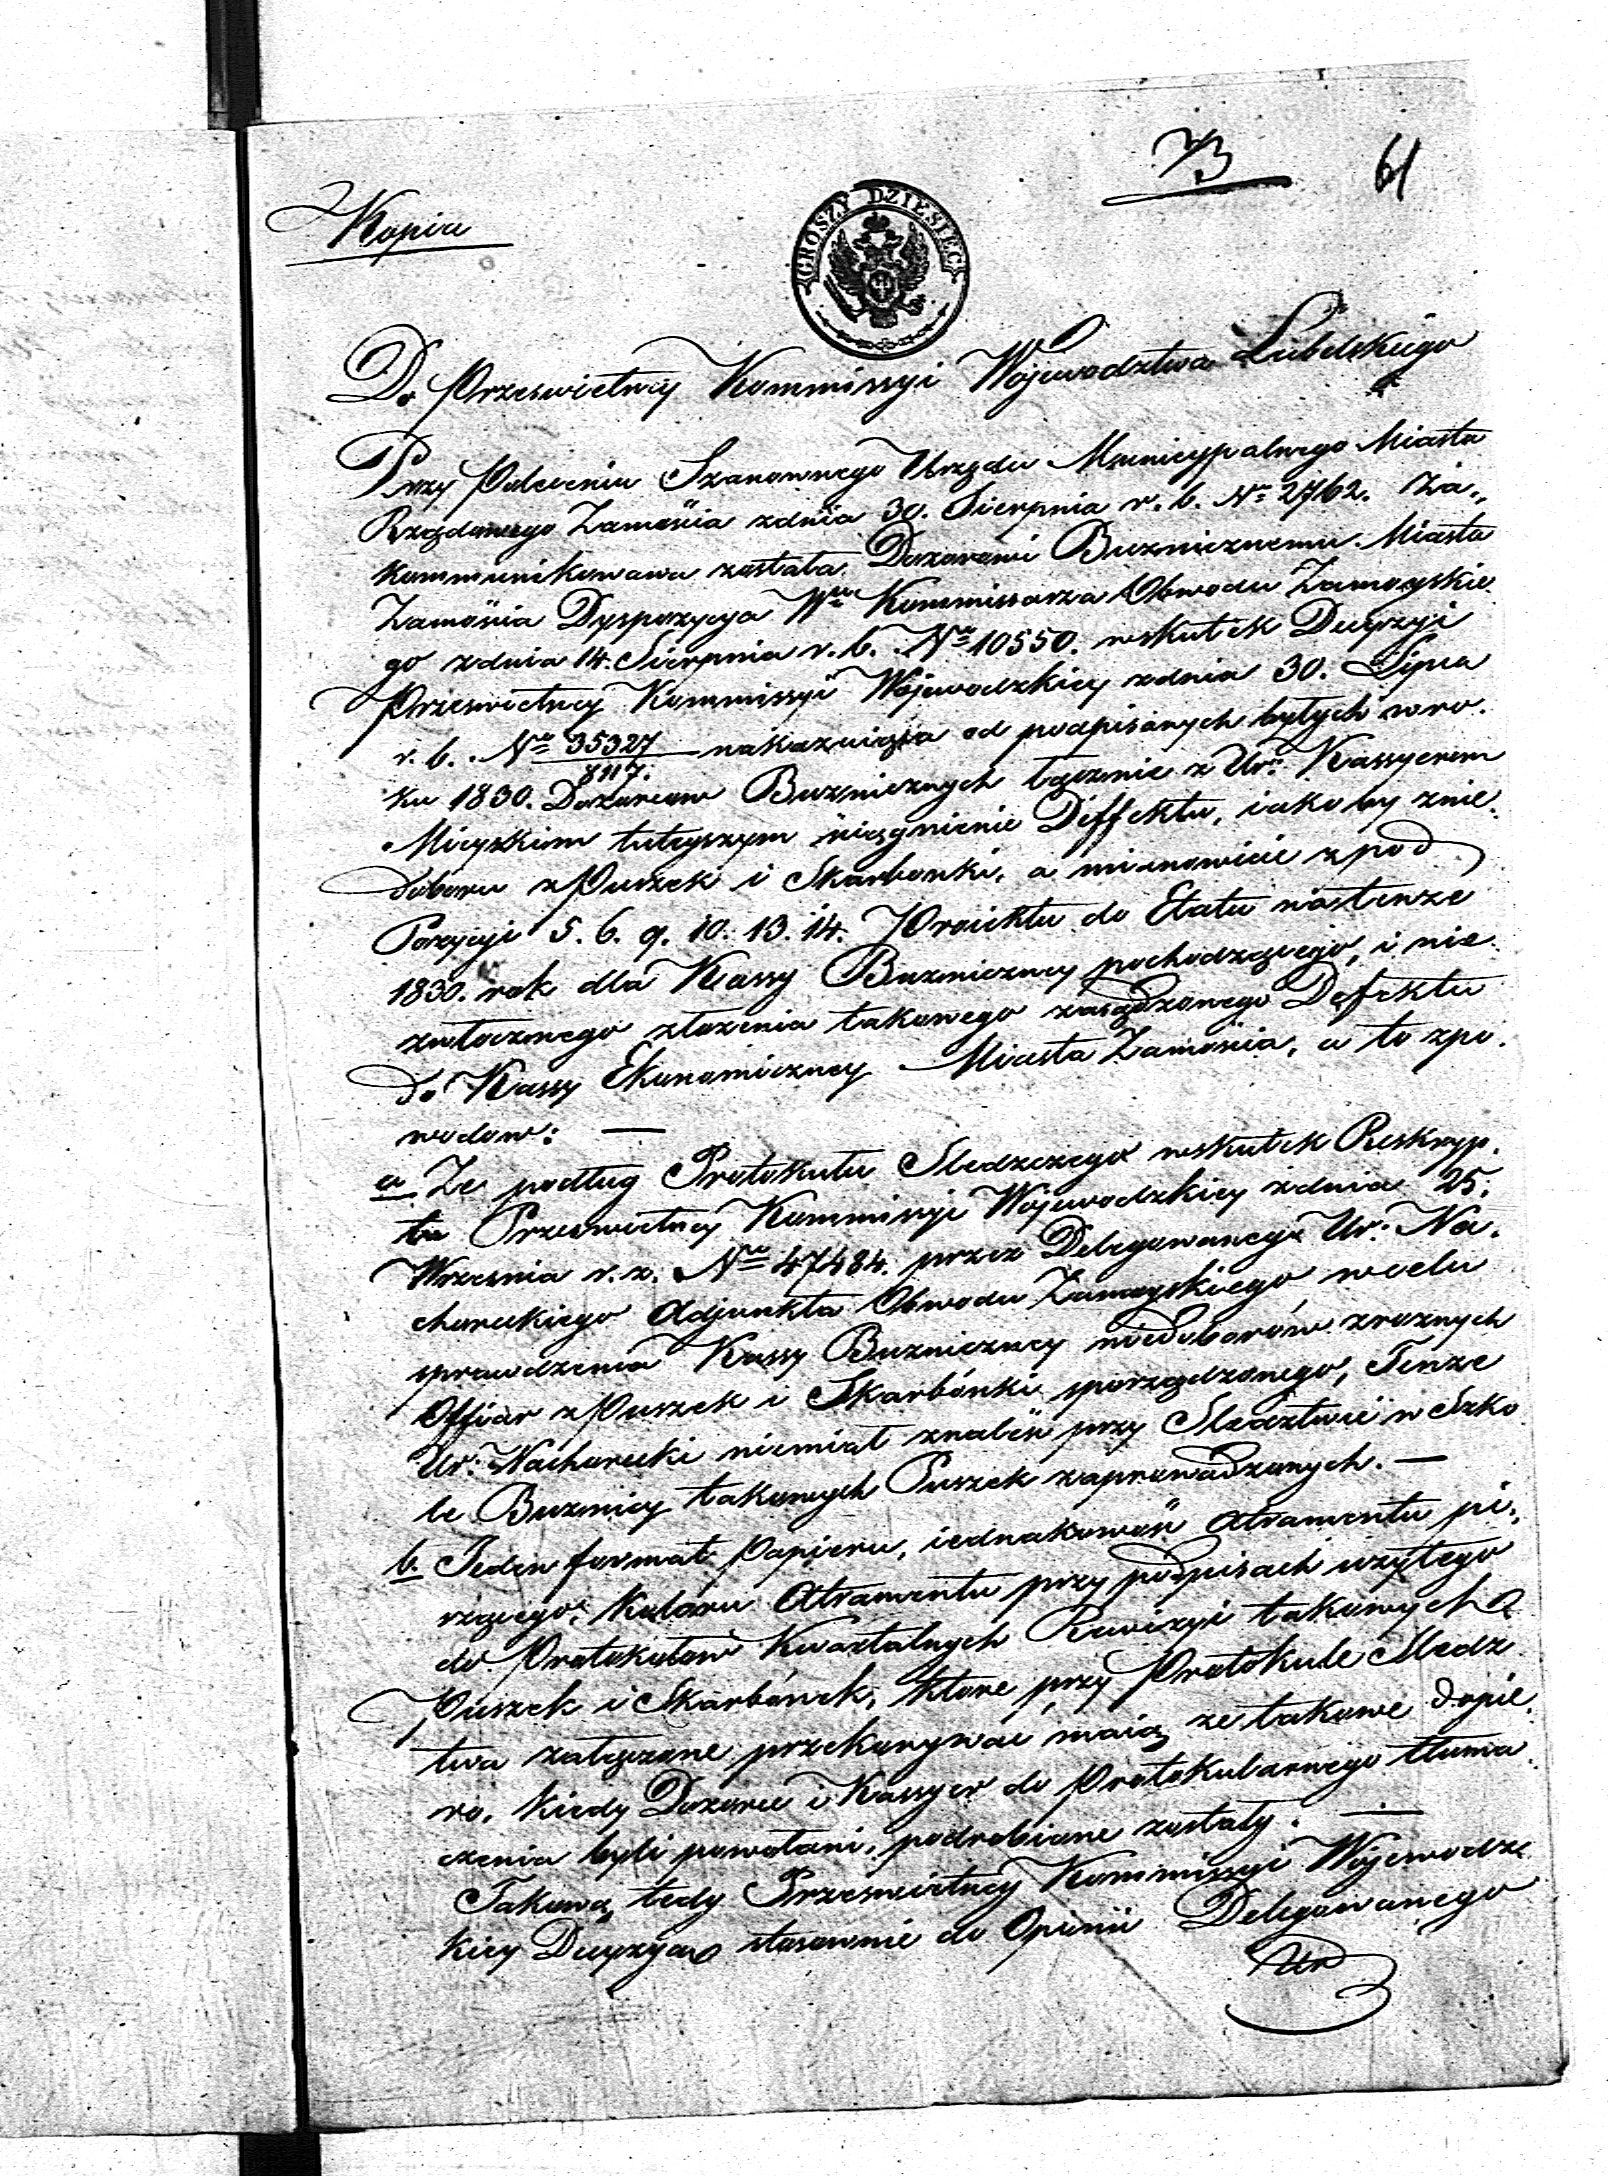 73
61
Kopia
GROSZY DZIESIĘC
Do Prześwietney Kommissyi Wojewodztwa Lubelskiego
Przy Poleceniu Szanownego Urzędu Municypalnego Miasta
Rządowego Zamościa zdnia 30. Sierpnia r. b. No 2762. Za„
kommunikowana została Dozorowi Buznicznemu Miasta
Zamościa Dyspozycya Wo Kommissarza Obwodu Zamoyskie
go zdnia 14. Sierpnia r. b. No 10550. wskutek Decyzyi
Prześwietney Kommissyi Wojewodzkiey zdnia 30. Lipca
r. b. No 35327/8117. nakazuiąca od podpisanych byłych w ro.
ku 1830. Dozorcow Buzniczych łącznie z Ur: Kassyerem
Mieyskim tuteyszym ściągnienie Diffektu, iakoby znie.
doboru z Puszek i Skarbonki, a mianowicie z pod
Pozycyi 5. 6. 9. 10. 13. 14. Proiektu do Etatu na tenże
1830. rok dla Kassy Buzniczney pochodzącego, i nie
zwłocznego złożenia takowego zasądzonego Defektu
do Kassy Ekonomiczney Miasta Zamościa, a to zpo.
wodow: —
a Że podług Protokułu Sledczego wskutek Reskryp.
tu Prześwietney Kommissyi Wojewodzkiey zdnia 25.
Września r. z. No 47484. przez Delegowanego Ur: Na.
chareckiego Adjunkta Obwodu Zamoyskiego w celu
sprawdzenia Kassy Buzniczney niedoborów z roznych
Offiar z Puszek i Skarbónki sporządzonego, Tenże
Ur: Nacharecki niemiał znaleść przy Sledztwie w Szko
le Buznicy takowych Puszek zaprowadzonych. —
b. Jeden format Papieru, iednakowość Atramentu pi„
rzącego, koloru Atramentu przy podpisach użytego
do Protokułow Kwartalnych Rewizyi takowych
Puszek i Skarbónek, ktore przy Protokule Sledz
twa załączone przekonywać maią że takowe dopie.
ro, kiedy Dozorcy i Kassyer do Protokularnego tłuma
czenia byli powołani, podrobione zostały. —
Takową tedy Prześwietney Kommissyi Wojewodz
kiey Decyzyą stosownie do Opinii Delegowanego
Ur